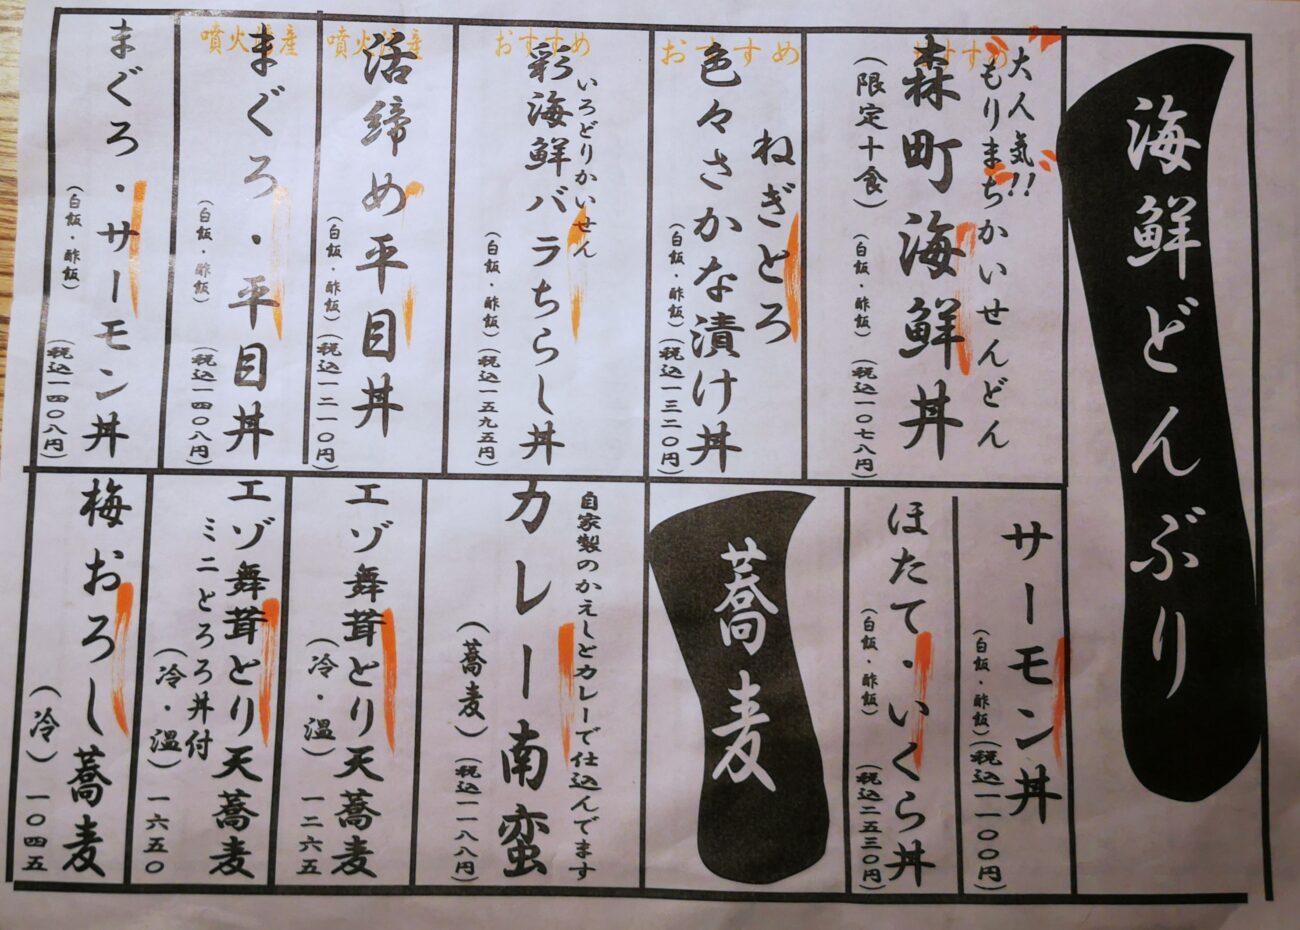 海鮮どんぶり
大人気!!
もりまちかいせんどん
おすすめ
森町海鮮丼
(限定十食)
(白飯・酢飯)
(税込一〇七八円)
おすすめ
ねぎとろ
色々さかな漬け丼
(白飯・酢飯)
(税込一三二〇円)
おすすめ
いろどりかいせん
彩海鮮バラちらし丼
(白飯・酢飯)
(税込一五九五円)
活締め平目丼
(白飯・酢飯)
(税込一二一〇円)
まぐろ・平目丼
(白飯・酢飯)
(税込一四〇八円)
まぐろ・サーモン丼
(白飯・酢飯)
(税込一四〇八円)
サーモン丼
(白飯・酢飯)
(税込一一〇〇円)
ほたて・いくら丼
(白飯・酢飯)
(税込二五三〇円)
蕎麦
自家製のかえしとカレーで仕込んでます
カレー南蛮
(蕎麦)
(税込一一八八円)
エゾ舞茸とり天蕎麦
(冷・温)
一二六五
エゾ舞茸とり天蕎麦
ミニとろろ丼付
(冷・温)
一六五〇
梅おろし蕎麦
(冷)
一〇四五